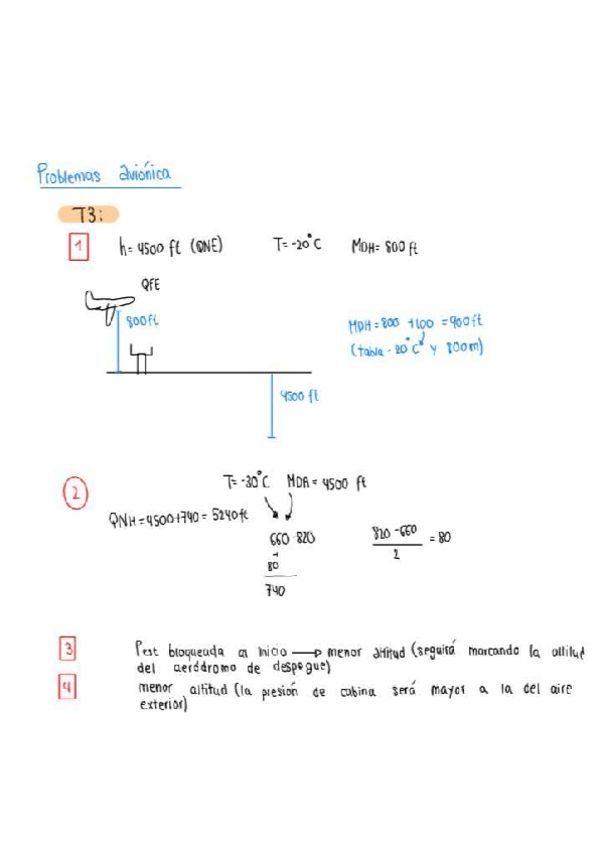 Problemas aviónica
T3:
1 h= 4500 ft (QNE) T= -20°C MDH= 800 ft
QFE
800 ft
MDH = 800 + 100 = 900 ft
(tabla - 20°C y 800m)
4500 ft
2 T= -30°C MDA = 4500 ft
QNH = 4500+740 = 5240 ft
660 - 820
+
80
740
820 - 660
2
= 80
3 Pest bloqueada al inicio → menor altitud (seguirá marcando la altitud
del aeródromo de despegue)
4 menor altitud (la presión de cabina será mayor a la del aire
exterior)